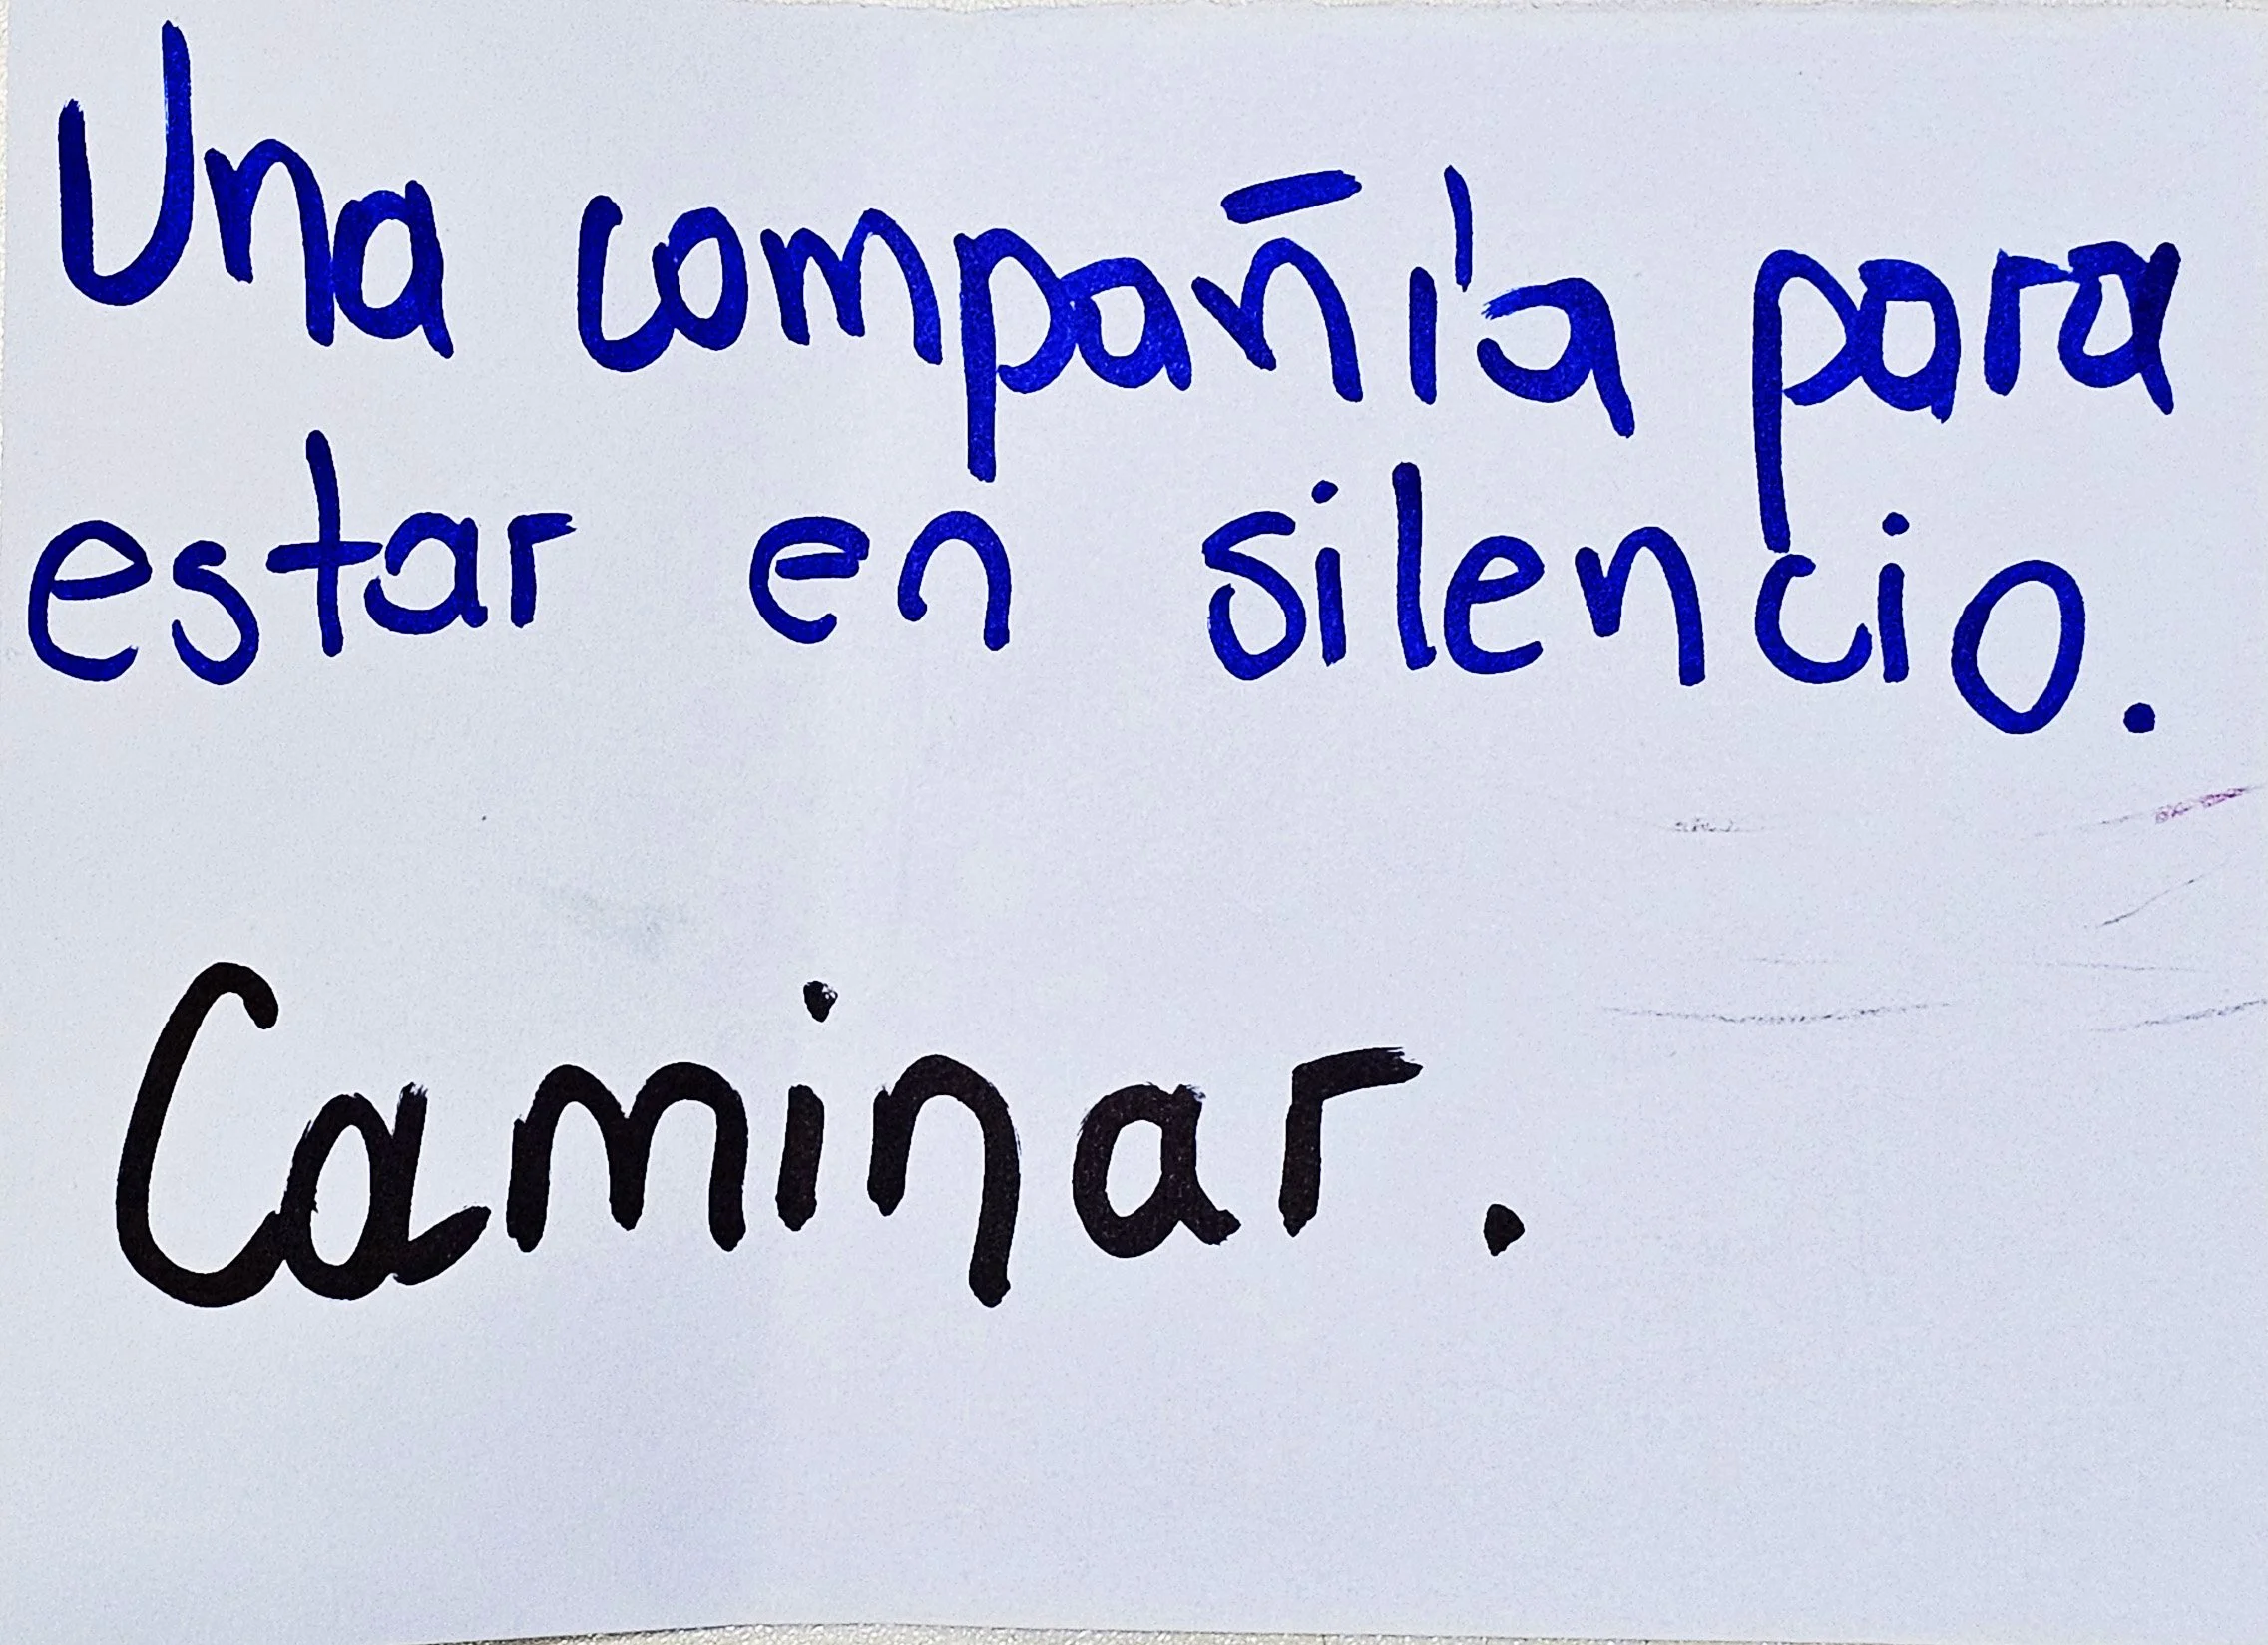 Una compañía para
estar en silencio.
Caminar.